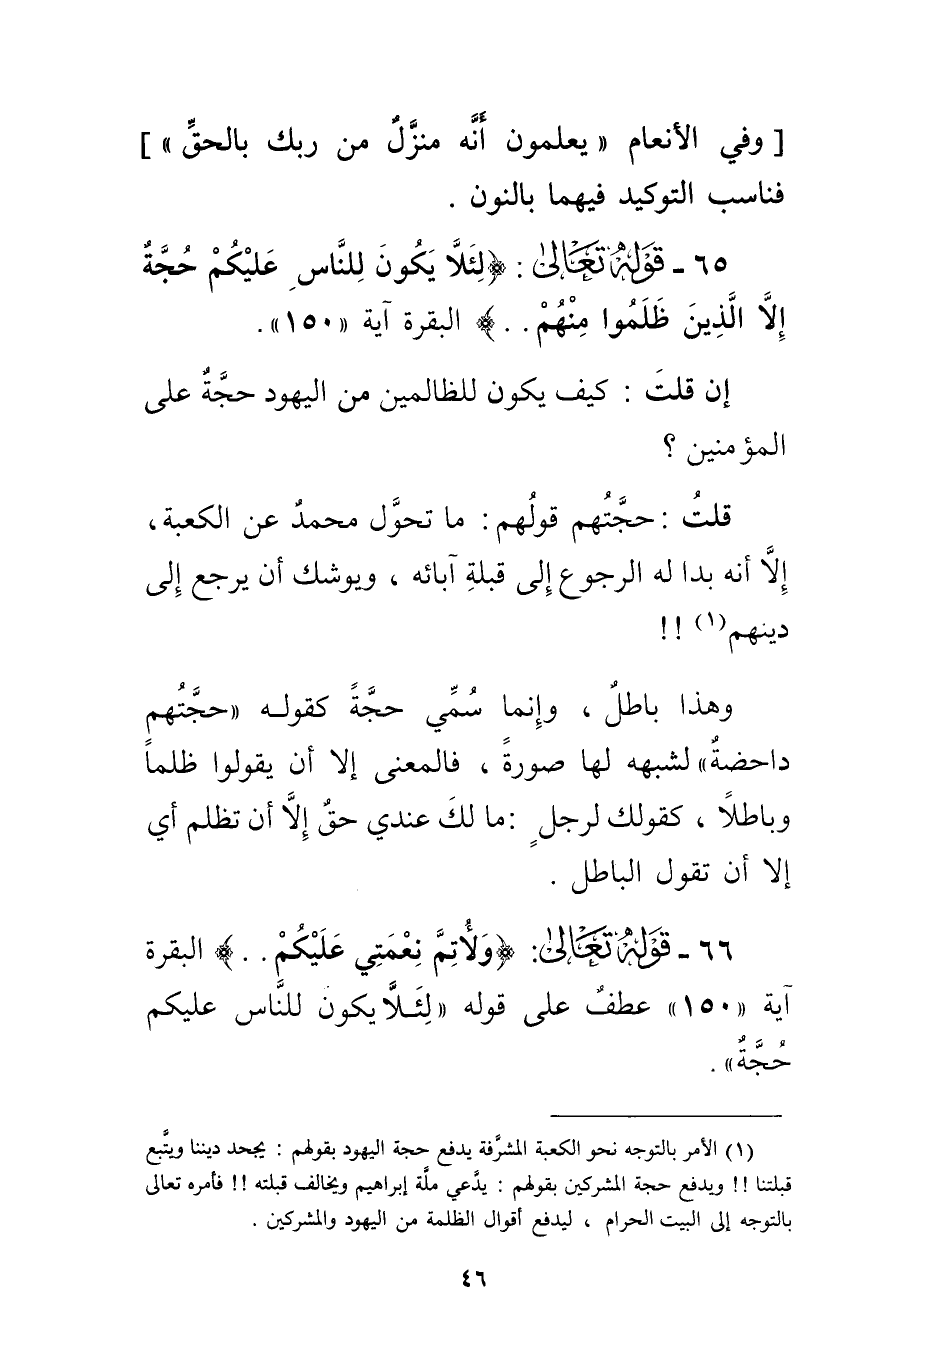 [ وفي الأنعام « يعلمون أنَّه منزَّلٌ من ربك بالحقِّ » ]
فناسب التوكيد فيهما بالنون .
٦٥ ـ قَوْلُهُ تَعَالَىٰ : ﴿لِئَلَّا يَكُونَ لِلنَّاسِ عَلَيْكُمْ حُجَّةٌ
إِلَّا الَّذِينَ ظَلَمُوا مِنْهُمْ . . ﴾ البقرة آية «١٥٠».
إن قلتَ : كيف يكون للظالمين من اليهود حجَّةٌ على
المؤمنين ؟
قلتُ : حجَّتُهم قولُهم : ما تحوَّل محمدٌ عن الكعبة ،
إلَّا أنه بدا له الرجوع إلى قبلةِ آبائه ، ويوشك أن يرجع إلى
دينهم(١) !!
وهذا باطلٌ ، وإنما سُمِّي حجَّةً كقولـه «حجَّتُهم
داحضةٌ» لشبهه لها صورةً ، فالمعنى إلا أن يقولوا ظلماً
وباطلاً ، كقولك لرجلٍ : ما لكَ عندي حقٌ إلَّا أن تظلم أي
إلا أن تقول الباطل .
٦٦ ـ قَوْلُهُ تَعَالَىٰ: ﴿وَلأُتِمَّ نِعْمَتِي عَلَيْكُمْ . . ﴾ البقرة
آية «١٥٠» عطفٌ على قوله «لِئَـلاَّ يكونَ للنَّاس عليكم
حُجَّةٌ» .
(١) الأمر بالتوجه نحو الكعبة المشرَّفة يدفع حجة اليهود بقولهم : يجحد ديننا ويتَّبع
قبلتنا !! ويدفع حجة المشركين بقولهم : يدَّعي ملَّة إبراهيم ويخالف قبلته !! فأمره تعالى
بالتوجه إلى البيت الحرام ، ليدفع أقوال الظلمة من اليهود والمشركين .
٤٦